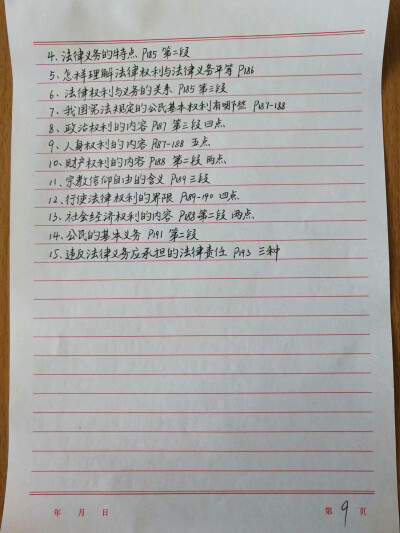 4. 法律义务的特点 P185 第二段
5、怎样理解法律权利与法律义务平等 P186
6、法律权利与义务的关系 P185 第三段
7、我国宪法规定的公民基本权利有哪些 P187-188
8、政治权利的内容 P187 第三段 四点
9、人身权利的内容 P187-188 五点
10、财产权利的内容 P188 第二段 两点
11、宗教信仰自由的含义 P189 三段
12、行使法律权利的界限 P189-190 四点
13、社会经济权利的内容 P188 第二段 两点
14、公民的基本义务 P191 第二段
15、违反法律义务应承担的法律责任 P193 三种
年 月 日 第 9 页